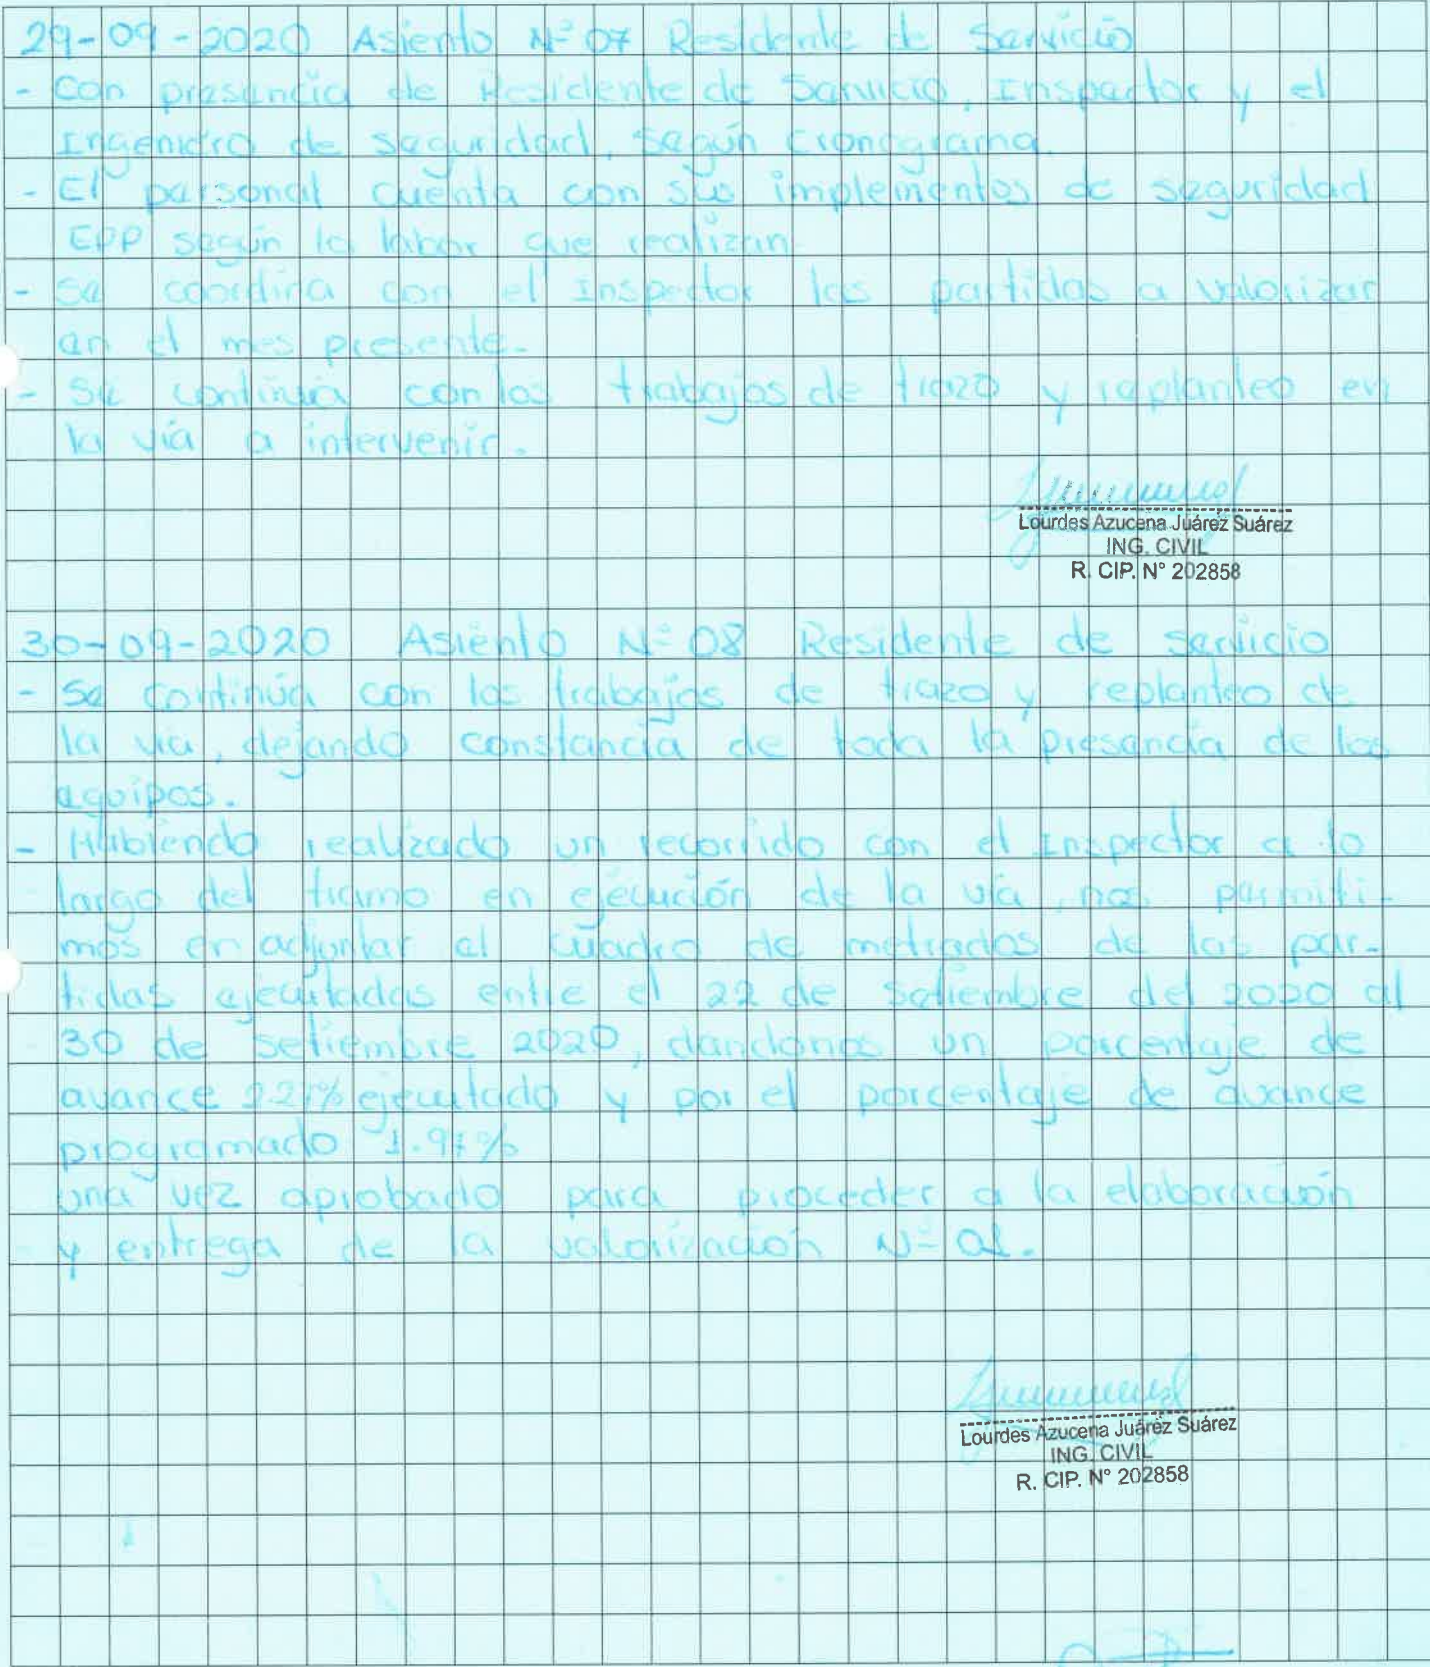 29-09-2020 Asiento Nº 07 Residente de Servicio
- Con presencia de Residente de Servicio, Inspector y el
Ingeniero de seguridad, según cronograma.
- El personal cuenta con sus implementos de seguridad
EPP según la labor que realizan.
- Se coordina con el Inspector las partidas a valorizar
en el mes presente.
- Se continúa con los trabajos de trazo y replanteo en
la vía a intervenir.
Lourdes Azucena Juárez Suárez
ING. CIVIL
R. CIP. N° 202858
30-09-2020 Asiento Nº 08 Residente de servicio
- Se continúa con los trabajos de trazo y replanteo de
la vía, dejando constancia de toda la presencia de los
equipos.
- Habiendo realizado un recorrido con el Inspector a lo
largo del tramo en ejecución de la vía, nos permiti-
mos en adjuntar el cuadro de metrados de las par-
tidas ejecutadas entre el 22 de setiembre del 2020 al
30 de setiembre 2020, dandonos un porcentaje de
avance ejecutado y por el porcentaje de avance
programado 1.97%
una vez aprobado para proceder a la elaboración
y entrega de la valorización Nº 01.
Lourdes Azucena Juárez Suárez
ING. CIVIL
R. CIP. N° 202858